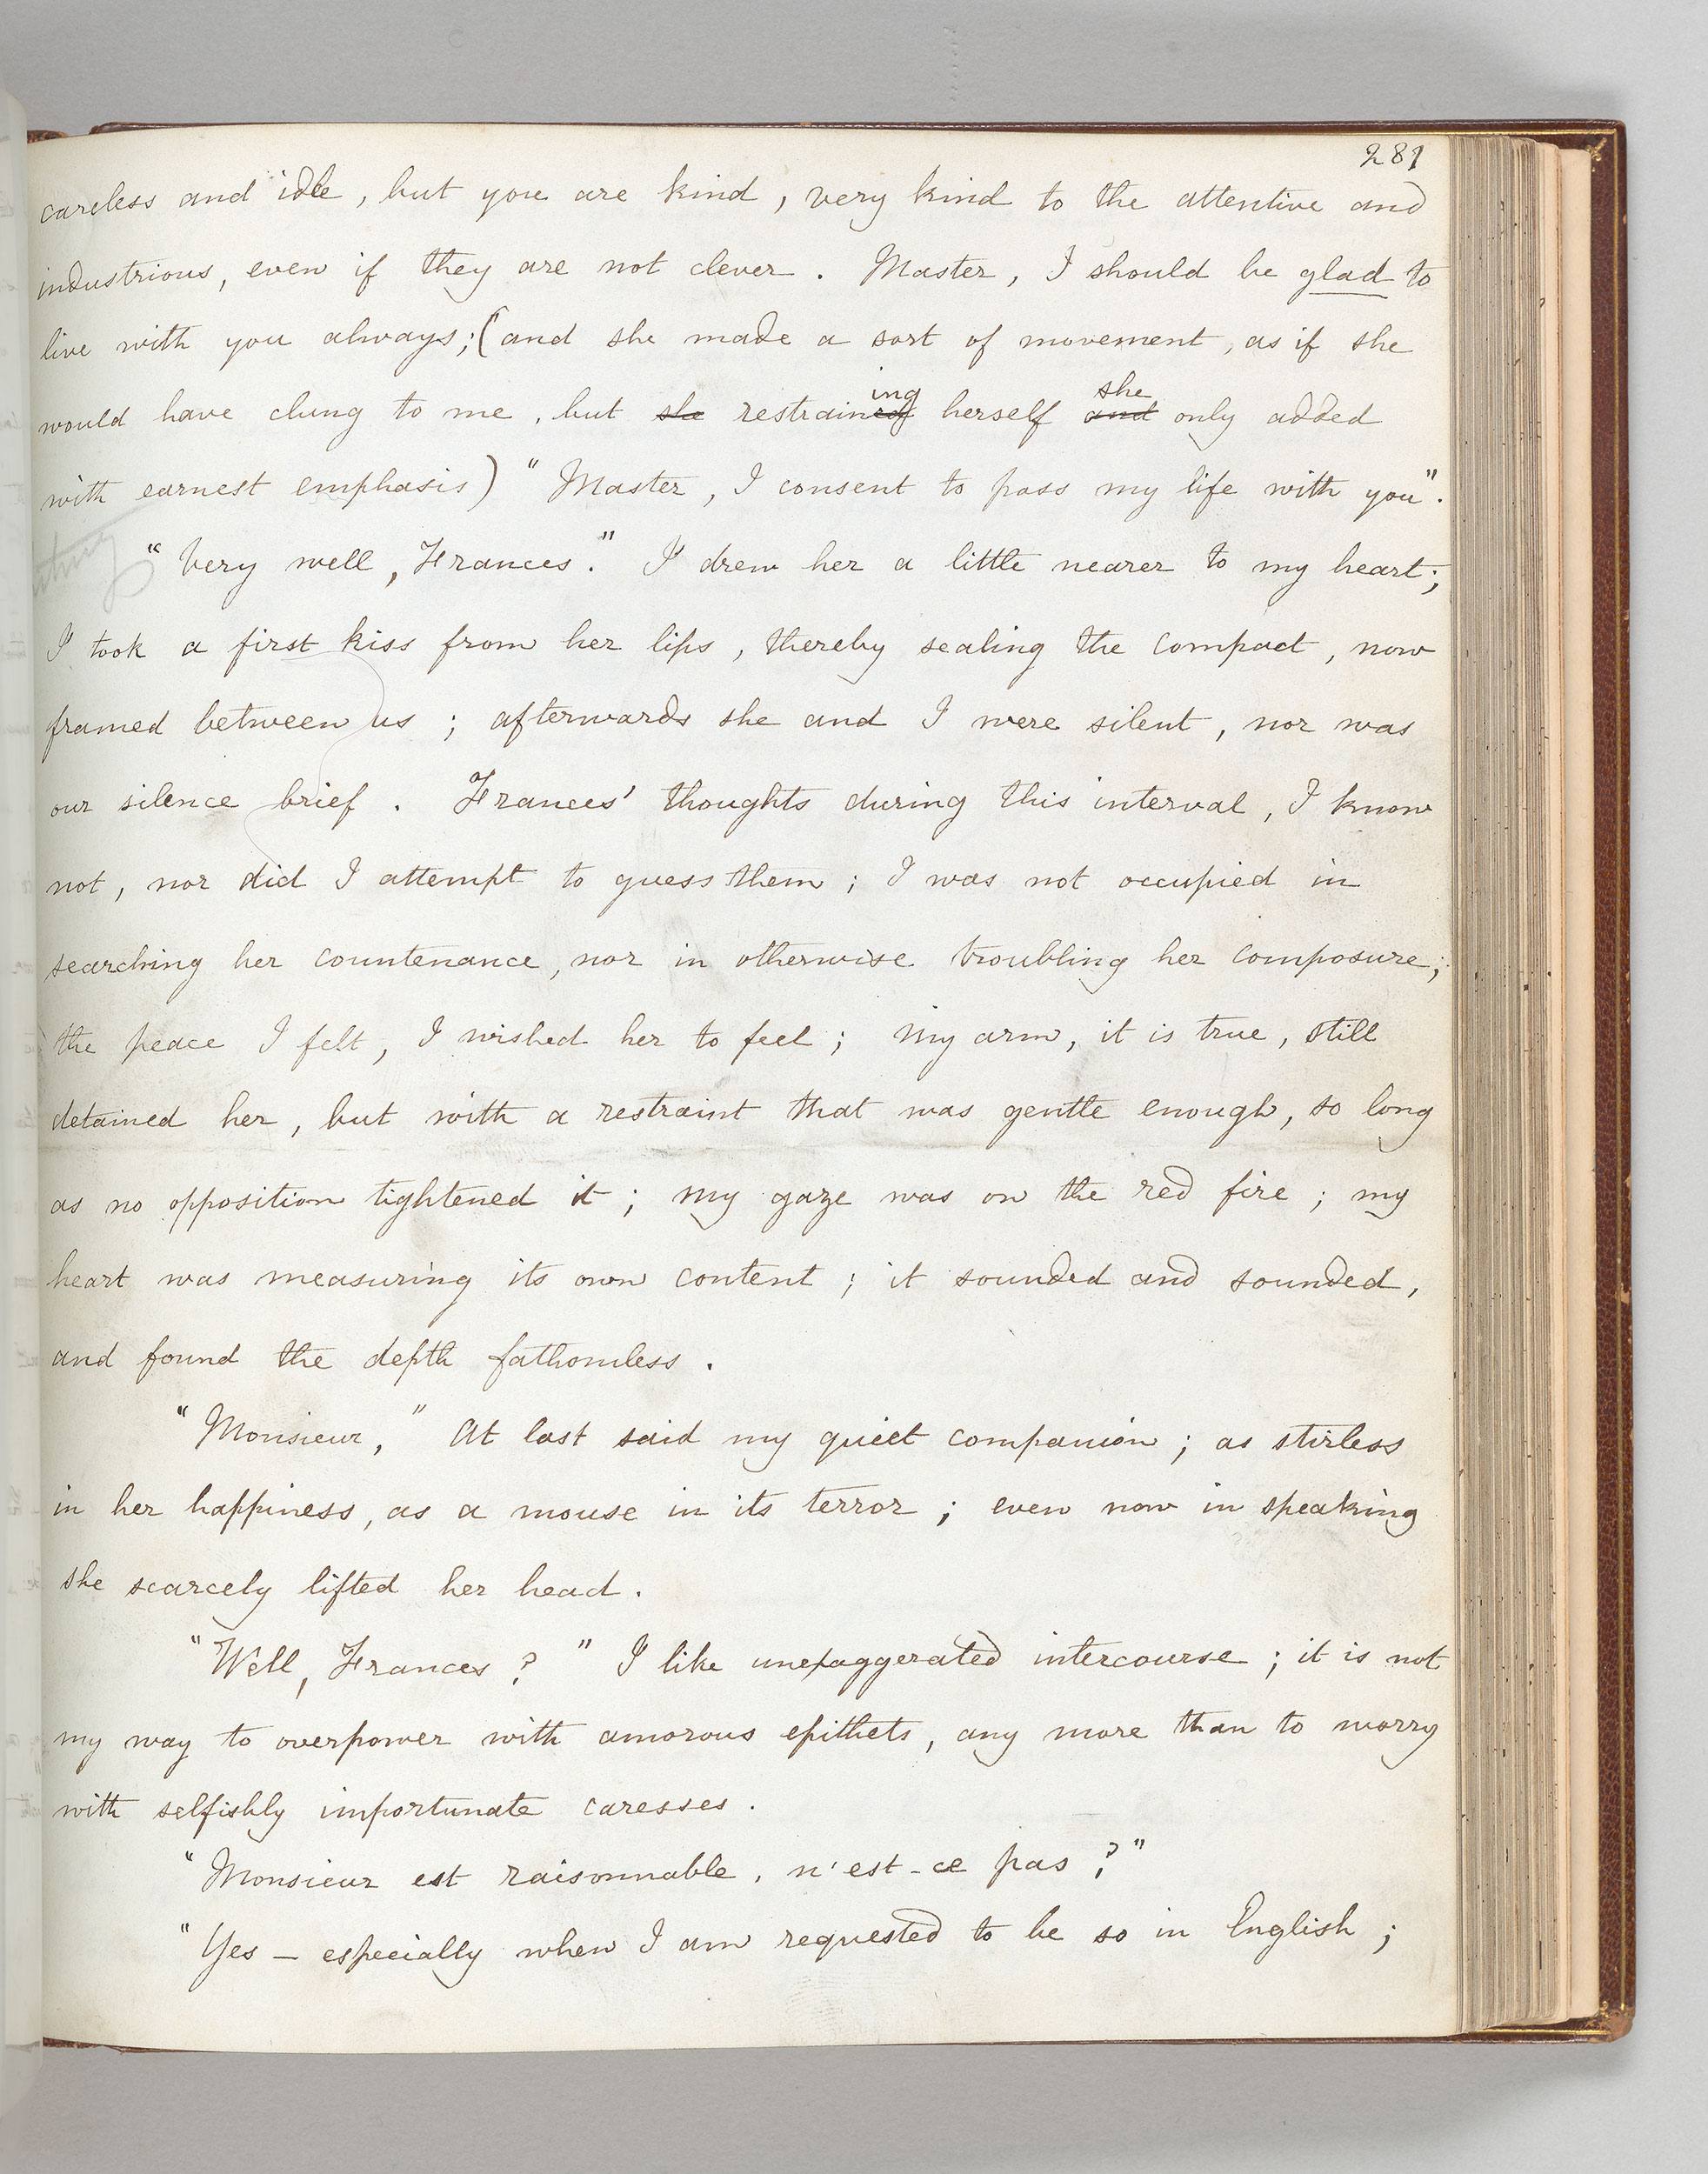 281
careless and idle, but you are kind, very kind to the attentive and
industrious, even if they are not clever. Master, I should be glad to
live with you always; (and she made a sort of movement, as if she
ing she
would have clung to me, but she restrained herself and only added
with earnest emphasis) "Master, I consent to pass my life with you".
"Very well, Frances." I drew her a little nearer to my heart;
I took a first kiss from her lips, thereby sealing the compact, now
framed between us; afterwards she and I were silent, nor was
our silence brief. Frances' thoughts during this interval, I know
not, nor did I attempt to guess them; I was not occupied in
searching her countenance, nor in otherwise troubling her composure;
the peace I felt, I wished her to feel; my arm, it is true, still
detained her, but with a restraint that was gentle enough, so long
as no opposition tightened it; my gaze was on the red fire; my
heart was measuring its own content; it sounded and sounded,
and found the depth fathomless.
"Monsieur," At last said my quiet companion; as stirless
in her happiness, as a mouse in its terror; even now in speaking
she scarcely lifted her head.
"Well, Frances?" I like unexaggerated intercourse; it is not
my way to overpower with amorous epithets, any more than to worry
with selfishly importunate caresses.
"Monsieur est raisonnable, n'est-ce pas?"
"Yes — especially when I am requested to be so in English;